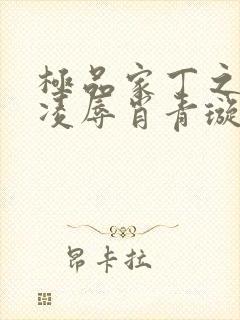 極品家丁之
凌辱肖青璇
昂卡拉